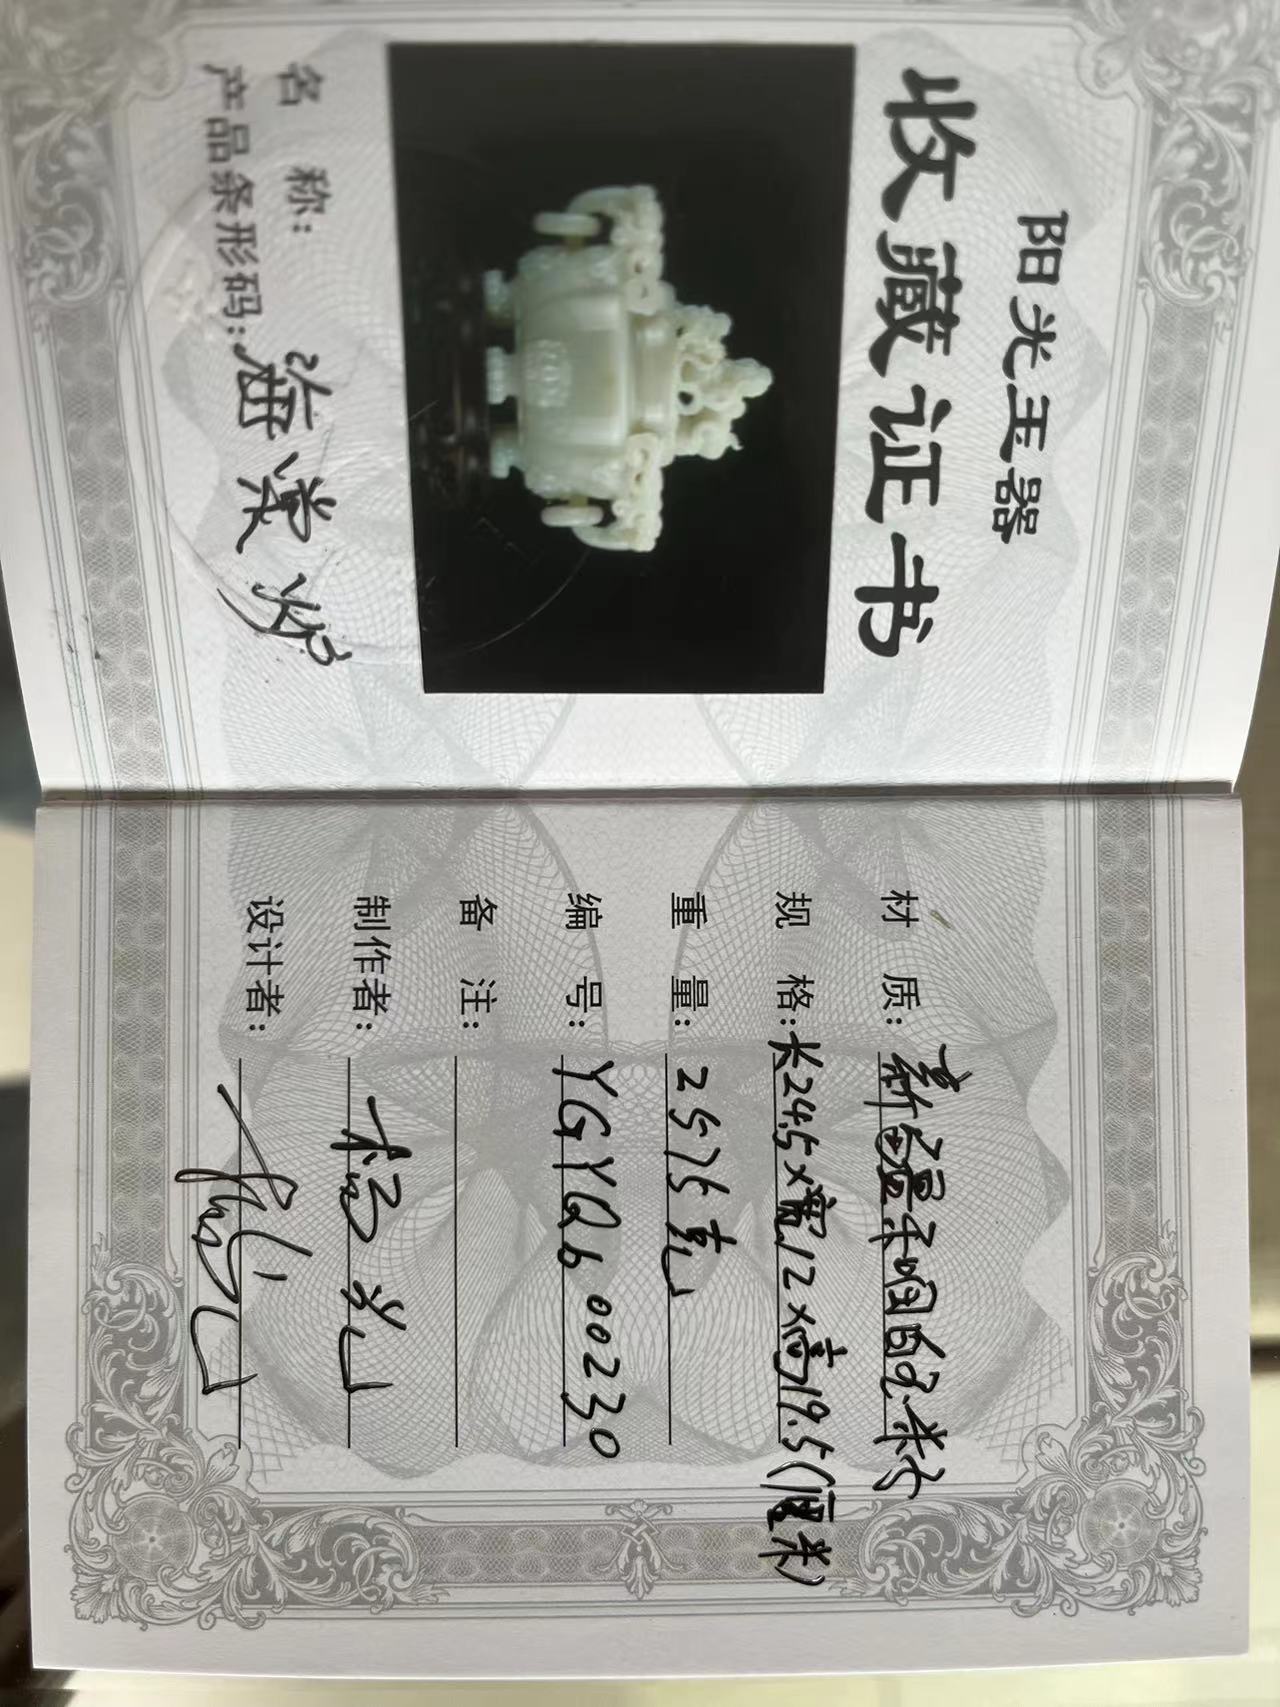 阳光玉器
收藏证书
名 称：
产品条形码：
材 质：新疆和阗白玉籽
规 格：长24.5×宽12×高19.5(厘米)
重 量：2575克
编 号：YGYQb00230
备 注：
制作者：杨光
设计者：